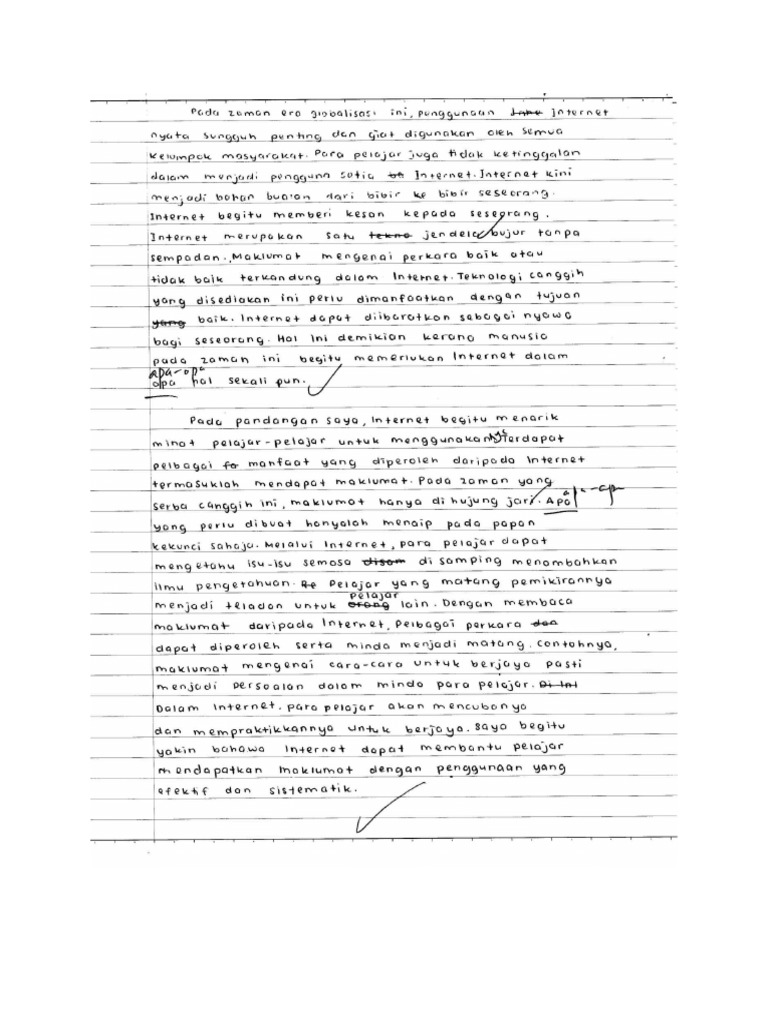 Pada zaman era globalisasi ini, penggunaan Internet
nyata sungguh penting dan giat digunakan oleh semua
kelompok masyarakat. Para pelajar juga tidak ketinggalan
dalam menjadi pengguna setia Internet. Internet kini
menjadi bahan bualan dari bibir ke bibir seseorang.
Internet begitu memberi kesan kepada seseorang.
Internet merupakan satu tekno jendela bujur tanpa
sempadan. Maklumat mengenai perkara baik atau
tidak baik terkandung dalam Internet. Teknologi canggih
yang disediakan ini perlu dimanfaatkan dengan tujuan
yang baik. Internet dapat diibaratkan sebagai nyawa
bagi seseorang. Hal ini demikian kerana manusia
pada zaman ini begitu memerlukan Internet dalam
apa-apa
apa hal sekali pun.
Pada pandangan saya, Internet begitu menarik
minat pelajar-pelajar untuk menggunakannya Terdapat
pelbagai manfaat yang diperoleh daripada Internet
termasuklah mendapat maklumat. Pada zaman yang
serba canggih ini, maklumat hanya di hujung jari. Apa
yang perlu dibuat hanyalah menaip pada papan
kekunci sahaja. Melalui Internet, para pelajar dapat
mengetahu isu-isu semasa disam di samping menambahkan
ilmu pengetahuan. Pelajar yang matang pemikirannya
pelajar
menjadi teladan untuk orang lain. Dengan membaca
maklumat daripada Internet, Pelbagai perkara dan
dapat diperoleh serta minda menjadi matang. Contohnya,
maklumat mengenai cara-cara untuk berjaya pasti
menjadi persoalan dalam minda para pelajar. Di Ini
Dalam Internet, para pelajar akan mencubanya
dan mempraktikkannya untuk berjaya. Saya begitu
yakin bahawa Internet dapat membantu pelajar
mendapatkan maklumat dengan penggunaan yang
efektif dan sistematik.